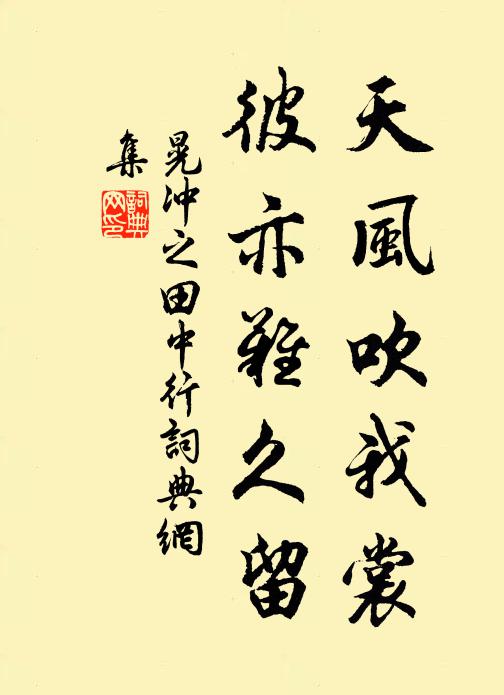 天風吹我裳
彼亦難久留
晁冲之田中行詞典網
集
詞典
网印